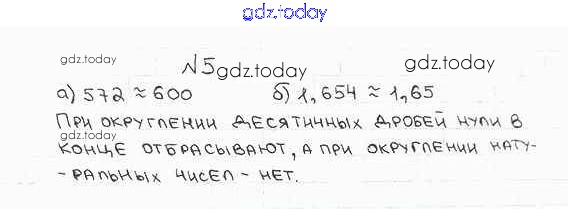 gdz.today
gdz.today
№5 gdz.today
gdz.today
а) 572 ≈ 600 б) 1,654 ≈ 1,65
При округлении десятичных дробей нули в
gdz.today
конце отбрасывают, а при округлении нату-
-ральных чисел - нет.